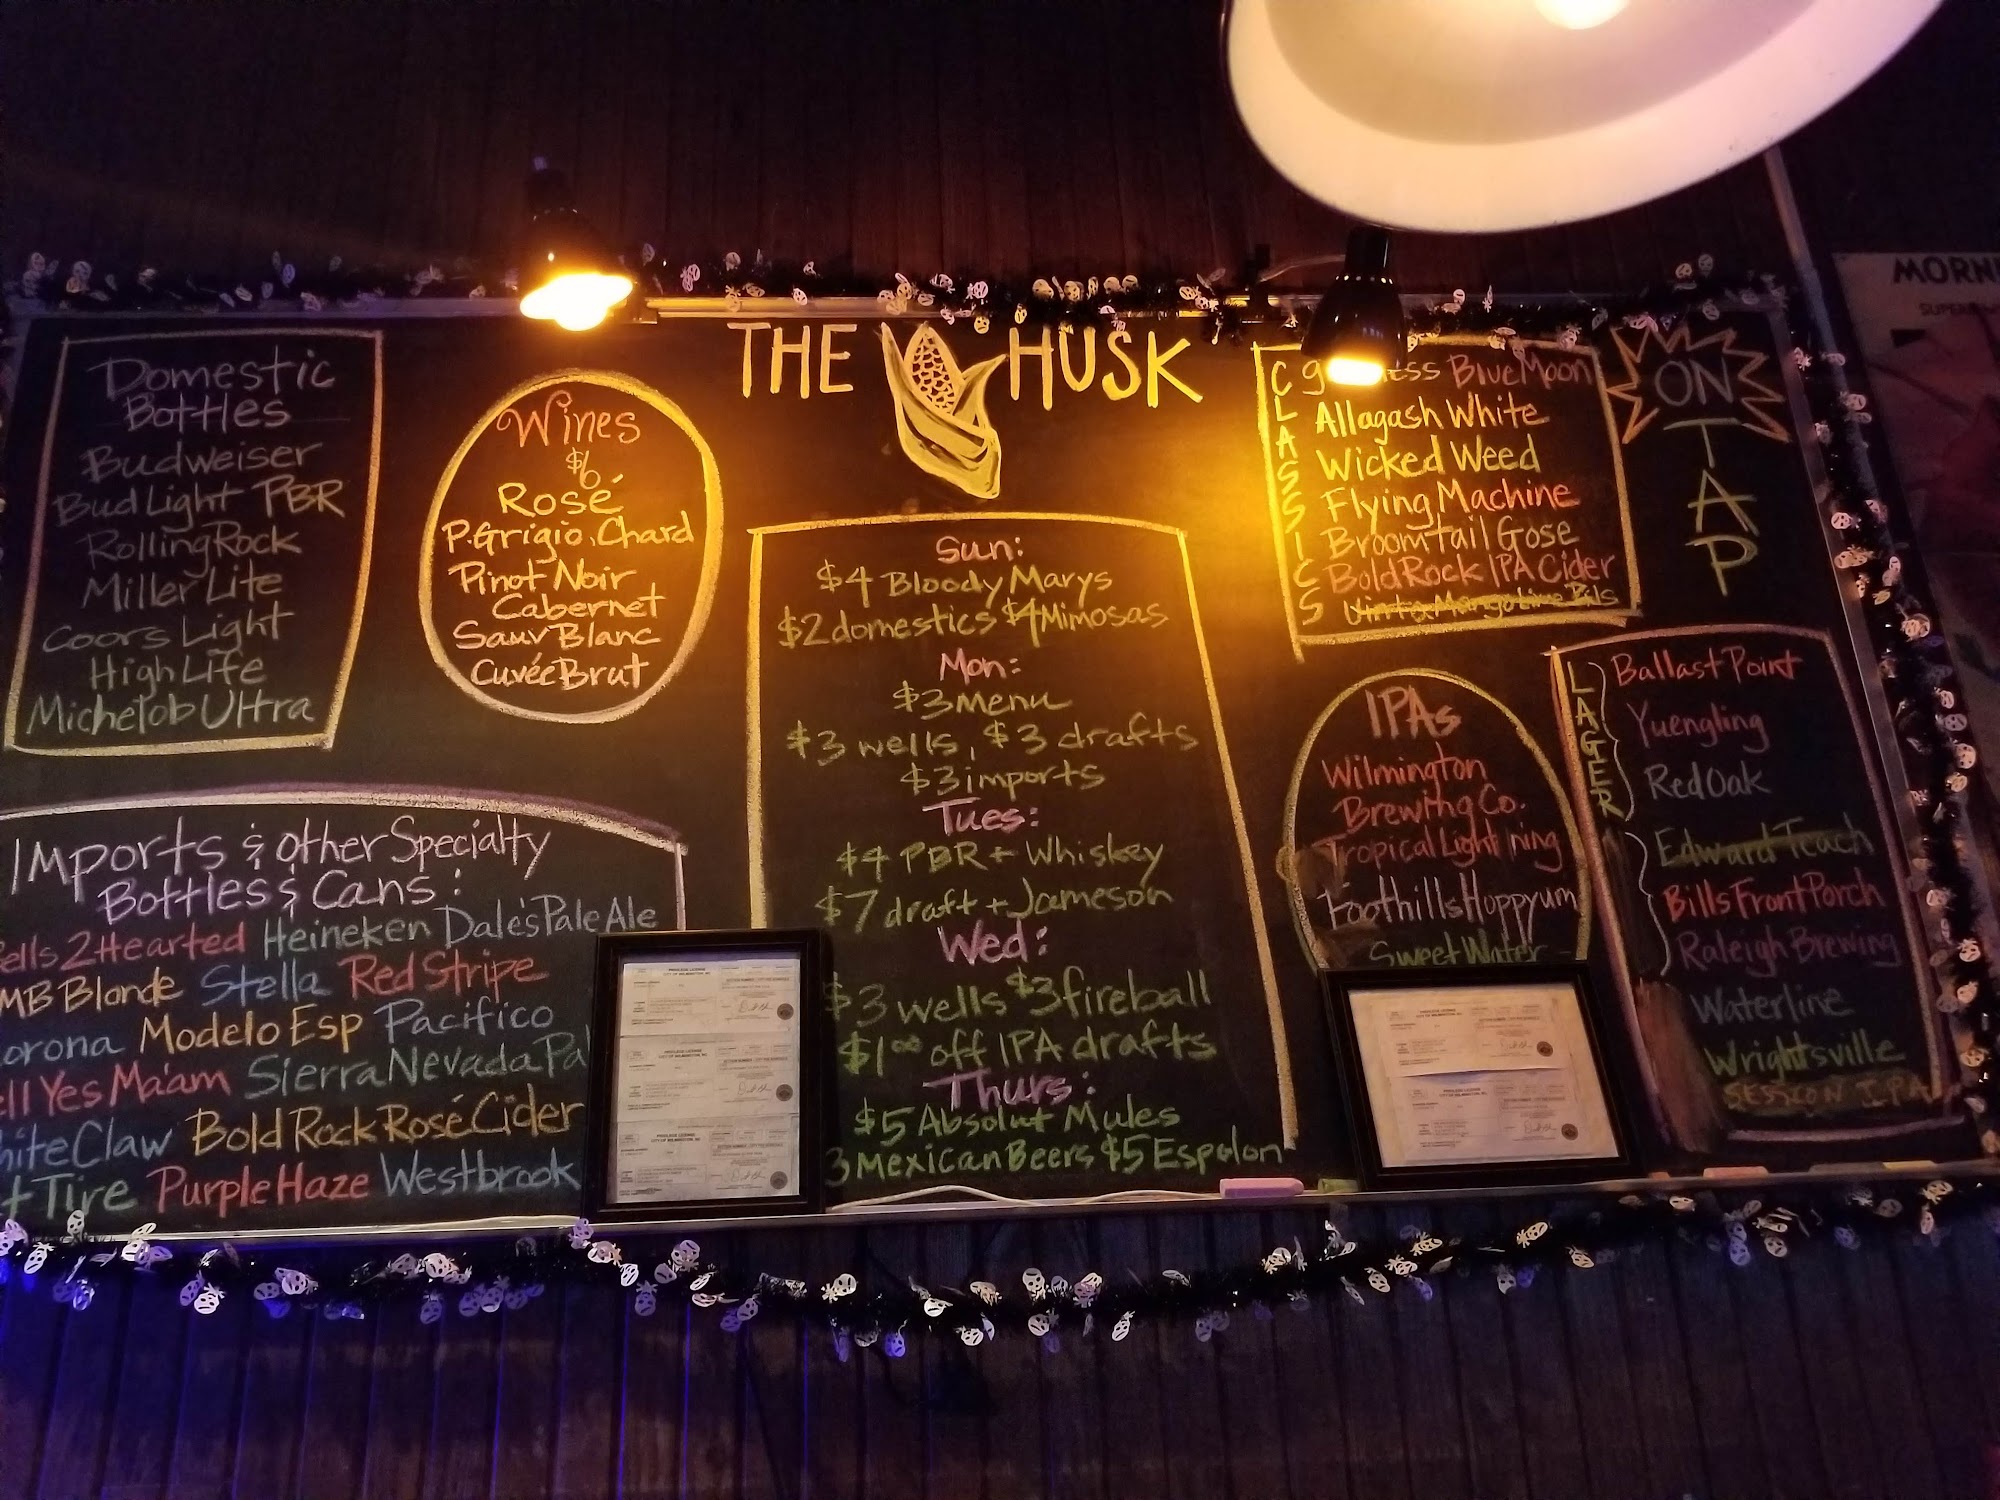 THE HUSK
Domestic
Bottles
Budweiser
Bud Light PBR
Rolling Rock
Miller Lite
Coors Light
High Life
Michelob Ultra
Wines
$6
Rosé
P. Grigio, Chard
Pinot Noir
Cabernet
Sauv Blanc
Cuvée Brut
IMPorts & other Specialty
Bottles & Cans:
ells 2 Hearted Heineken Dale's Pale Ale
MB Blonde Stella Red Stripe
orona Modelo Esp Pacifico
ell Yes Ma'am Sierra Nevada Pa
hite Claw Bold Rock Rosé Cider
t Tire Purple Haze Westbrook
Sun:
$4 Bloody Marys
$2 domestics $4 Mimosas
Mon:
$3 Menu
$3 wells, $3 drafts
$3 imports
Tues:
$4 PBR + Whiskey
$7 draft + Jameson
Wed:
$3 wells $3 fireball
$1.00 off IPA drafts
Thurs:
$5 Absolut Mules
3 Mexican Beers $5 Espolon
CLASSICS
g ess Blue Moon
Allagash White
Wicked Weed
Flying Machine
Broomtail Gose
Bold Rock IPA Cider
ON
TAP
IPAs
Wilmington
Brewing Co.
Tropical Lightning
Foothills Hoppyum
Sweet Water
LAGER
Ballast Point
Yuengling
Red Oak
Edward Teach
Bills Front Porch
Raleigh Brewing
Waterline
Wrightsville
SESSION IPA
MORN
PRIVILEGE LICENSE
CITY OF WILMINGTON, NC
PRIVILEGE LICENSE
CITY OF WILMINGTON, NC
PRIVILEGE LICENSE
CITY OF WILMINGTON, NC